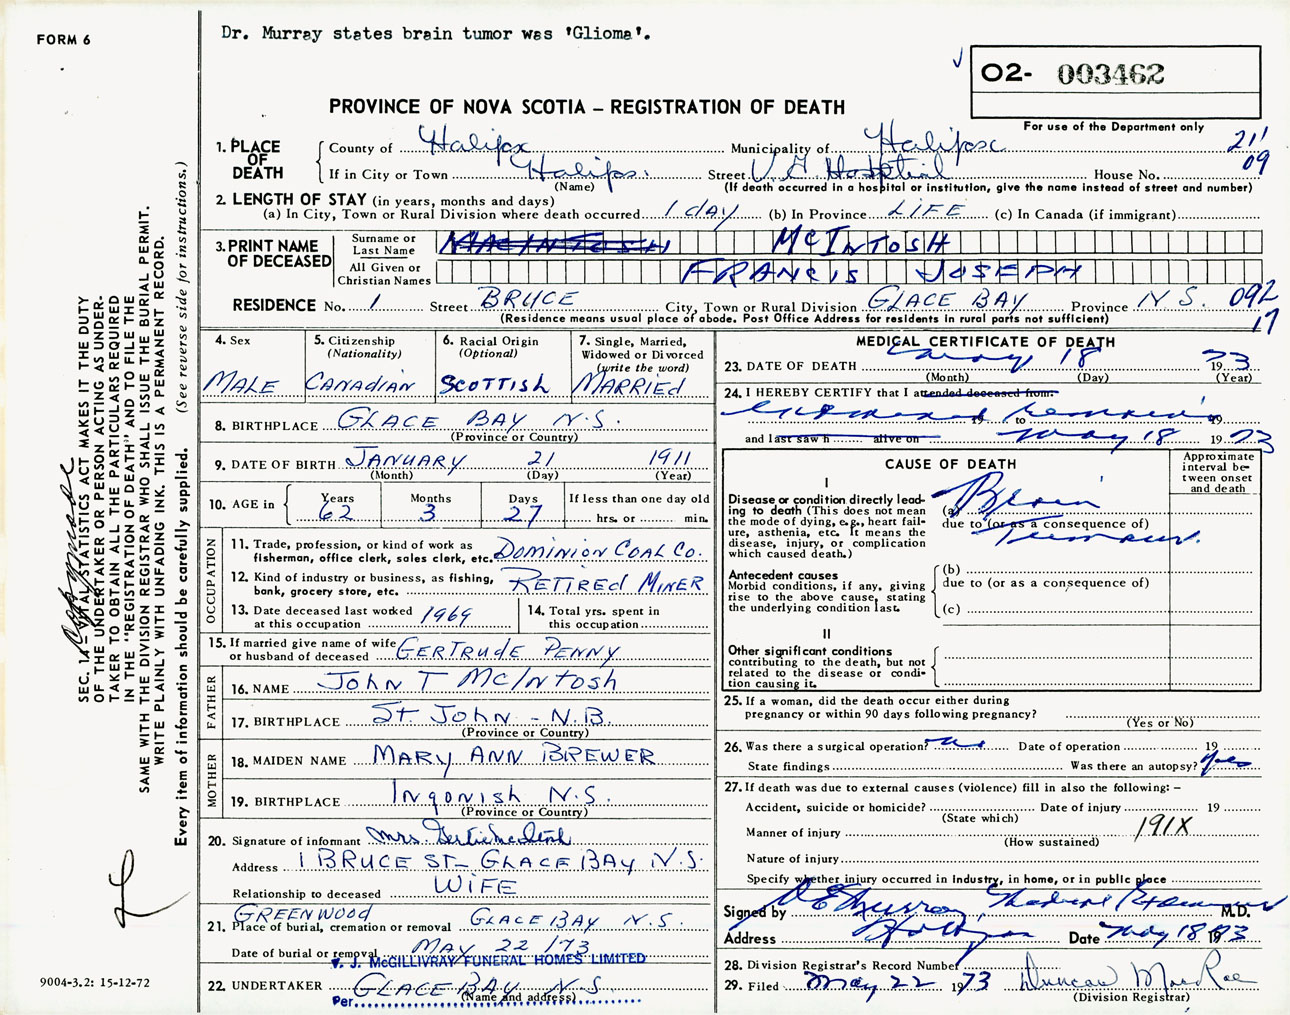 FORM 6
Dr. Murray states brain tumor was 'Glioma'.
O2- 003462
PROVINCE OF NOVA SCOTIA – REGISTRATION OF DEATH
For use of the Department only
1. PLACE OF DEATH
County of Halifax Municipality of Halifax 211
If in City or Town Halifax Street V. G. Hospital House No. 09
(Name) (If death occurred in a hospital or institution, give the name instead of street and number)
2. LENGTH OF STAY (in years, months and days)
(a) In City, Town or Rural Division where death occurred 1 day (b) In Province LIFE (c) In Canada (if immigrant)
3. PRINT NAME OF DECEASED
Surname or Last Name MACINTOSH MCINTOSH
All Given or Christian Names FRANCIS JOSEPH
RESIDENCE No. 1 Street BRUCE City, Town or Rural Division GLACE BAY Province N.S. 092
(Residence means usual place of abode. Post Office Address for residents in rural parts not sufficient) 17
4. Sex MALE
5. Citizenship (Nationality) CANADIAN
6. Racial Origin (Optional) SCOTTISH
7. Single, Married, Widowed or Divorced (write the word) MARRIED
8. BIRTHPLACE GLACE BAY N.S.
(Province or Country)
9. DATE OF BIRTH JANUARY 21 1911
(Month) (Day) (Year)
10. AGE in Years 62 Months 3 Days 27 If less than one day old
hrs. or min.
OCCUPATION
11. Trade, profession, or kind of work as fisherman, office clerk, sales clerk, etc. DOMINION COAL CO.
12. Kind of industry or business, as fishing, bank, grocery store, etc. RETIRED MINER
13. Date deceased last worked at this occupation 1969
14. Total yrs. spent in this occupation
15. If married give name of wife or husband of deceased GERTRUDE PENNY
FATHER
16. NAME JOHN T MCINTOSH
17. BIRTHPLACE ST. JOHN - N.B.
(Province or Country)
MOTHER
18. MAIDEN NAME MARY ANN BREWER
19. BIRTHPLACE INGONISH N.S.
(Province or Country)
20. Signature of informant Mrs. Gertie McIntosh
Address 1 BRUCE ST - GLACE BAY N.S.
Relationship to deceased WIFE
21. Place of burial, cremation or removal GREENWOOD GLACE BAY N.S.
Date of burial or removal MAY 22/73
V. J. McGILLIVRAY FUNERAL HOMES LIMITED
22. UNDERTAKER GLACE BAY N.S.
(Name and address)
Per
MEDICAL CERTIFICATE OF DEATH
23. DATE OF DEATH May 18 1973
(Month) (Day) (Year)
24. I HEREBY CERTIFY that I attended deceased from:
19 to 19
and last saw h alive on May 18 1973
CAUSE OF DEATH
Approximate interval between onset and death
I
Disease or condition directly leading to death (This does not mean the mode of dying, e.g., heart failure, asthenia, etc. It means the disease, injury, or complication which caused death.)
(a) Brain
due to (or as a consequence of)
Tumour.
Antecedent causes
Morbid conditions, if any, giving rise to the above cause, stating the underlying condition last.
(b)
due to (or as a consequence of)
(c)
II
Other significant conditions
contributing to the death, but not related to the disease or condition causing it.
25. If a woman, did the death occur either during pregnancy or within 90 days following pregnancy?
(Yes or No)
26. Was there a surgical operation? no Date of operation 19
State findings Was there an autopsy? yes
27. If death was due to external causes (violence) fill in also the following: –
Accident, suicide or homicide? Date of injury 19
(State which)
Manner of injury 191X
(How sustained)
Nature of injury
Specify whether injury occurred in Industry, in home, or in public place
Signed by Murray, Medical Examiner M.D.
Address Halifax Date May 18 1973
28. Division Registrar's Record Number
29. Filed May 22 1973 Duncan MacRae
(Division Registrar)
SEC. 14 – VITAL STATISTICS ACT MAKES IT THE DUTY
OF THE UNDERTAKER OR PERSON ACTING AS UNDER-
TAKER TO OBTAIN ALL THE PARTICULARS REQUIRED
IN THE "REGISTRATION OF DEATH" AND TO FILE THE
SAME WITH THE DIVISION REGISTRAR WHO SHALL ISSUE THE BURIAL PERMIT.
WRITE PLAINLY WITH UNFADING INK. THIS IS A PERMANENT RECORD.
Every item of information should be carefully supplied. (See reverse side for instructions.)
Copy made
9004-3.2: 15-12-72